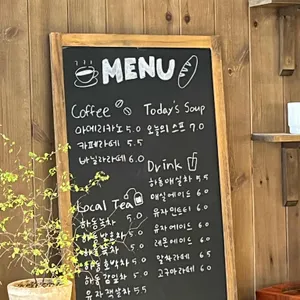 MENU
Coffee
아메리카노 5.0
카페라떼 5.5
바닐라라떼 6.0
Today's Soup
오늘의 스프 7.0
Drink
하동매실차 5.5
매실에이드 6.0
유자에이드 6.0
레몬에이드 6.0
쌀라떼 6.5
고구마라떼 6.0
Local Tea
하동녹차 5.0
5.0
하동쑥차 5.0
하동호박차 5.0
하동감잎차 5.0
유자 5.5